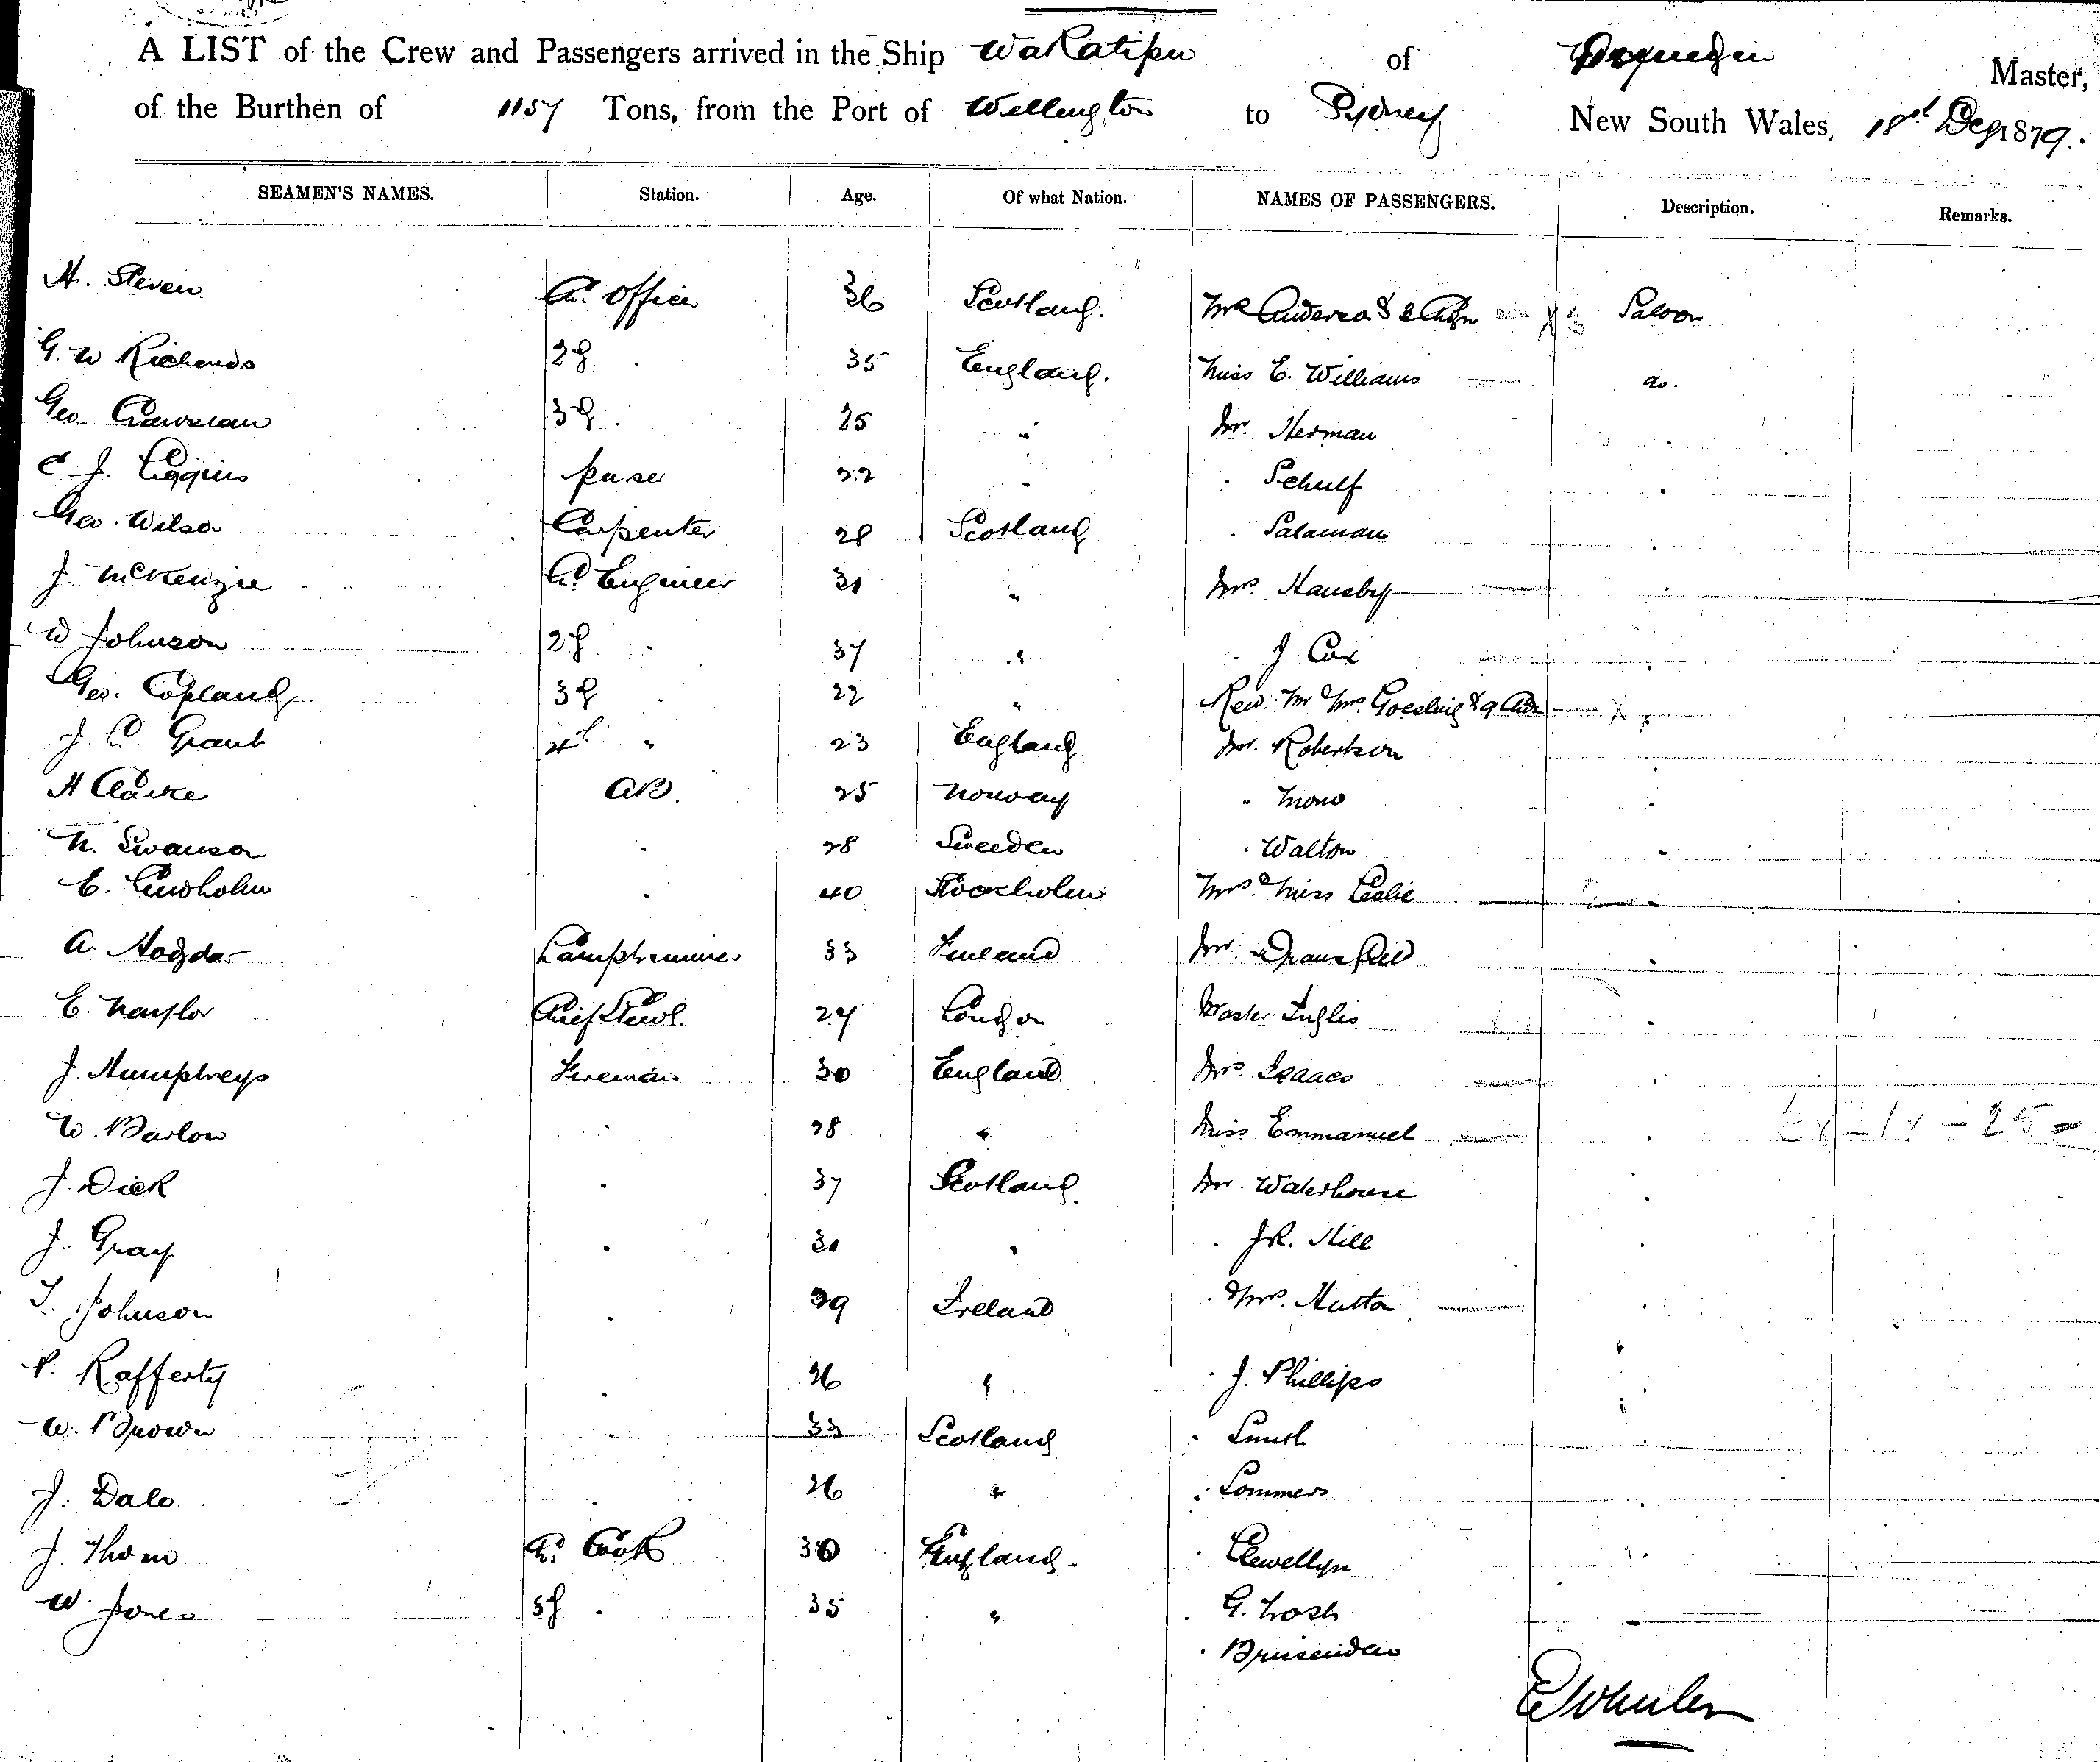 A LIST of the Crew and Passengers arrived in the Ship Wakatipu of Master,
of the Burthen of 1157 Tons, from the Port of Wellington to Sydney New South Wales, 18th Dec 1879.
SEAMEN'S NAMES. Station. Age. Of what Nation. NAMES OF PASSENGERS. Description. Remarks.
H. Steven Ch. Officer 36 Scotland. Mrs & 3 Chdn Saloon
G. W Richards 2d 35 England. Miss E. Williams do.
Geo. 3d 25 " Mr. Herman
C J. purser 22 " " Schulf
Geo. Wilson Carpenter 28 Scotland " Salaman
J. McKenzie Ch. Engineer 31 " Mrs.
W Johnson 2d " 37 " " J Cox
Geo. Copland 3d " 22 " Rev. Mr & Mrs. & 9 Chdn
J. C. Grant 4th " 23 England. Mr. Robertson
H Clarke AB. 25 Norway "
N. Swanson " 28 Sweeden " Walton
E. " 40 Stockholm Mrs & Miss Leslie
A. Lamptrimmer 33 Finland Mr.
E. Naylor Chief Stewd. 27 London Master Inglis
J. Humphreys Fireman 30 England Mrs. Isaacs
W. Barlow " 28 " Miss Emmanuel
J. Dick " 37 Scotland Mr. Waterhouse
J. Gray " 31 " " J R. Hill
T. Johnson " 29 Ireland " & Mrs. Hutton
P. Rafferty " 26 " " J. Phillips
W. Brown " 33 Scotland " Smith
J. Dale " 26 " " Sommers
J. Thom Ch. Cook 30 England. " Llewellyn
W. Jones " 35 " " G.
" Brisenden